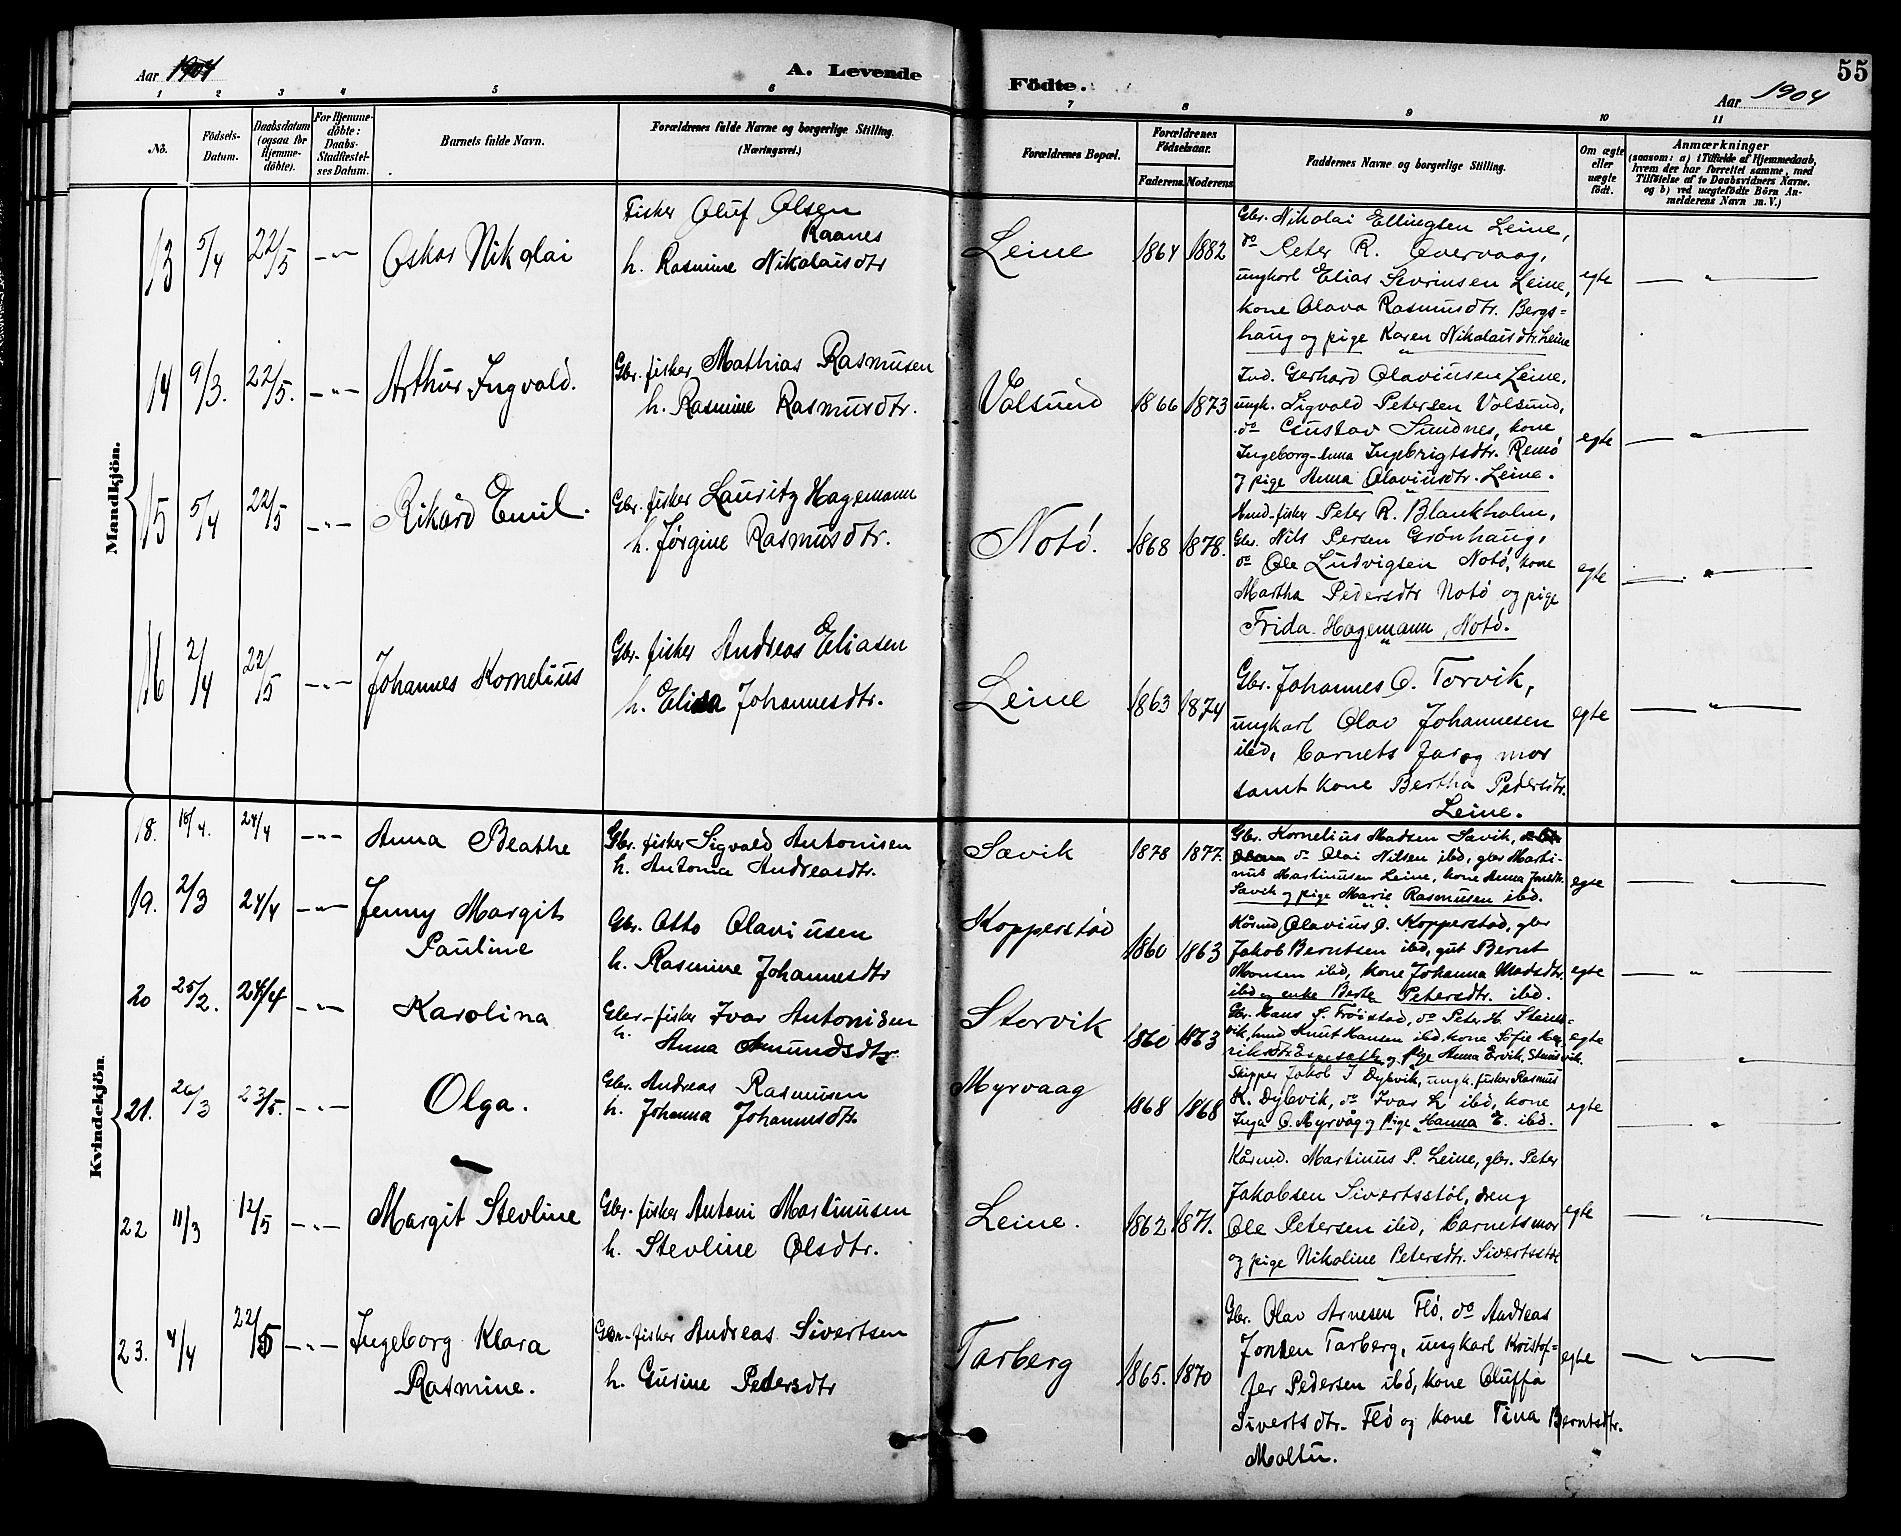 Aar 1904
A. Levende
Födte.
55
Aar 1904
1 2 3 4 5 6 7 8 9 10 11
No.
Födsels-
Datum.
Daabsdatum
(ogsaa for
Hjemme-
döbte).
For Hjemme-
döbte:
Daabs-
Stadfæstel-
ses Datum.
Barnets fulde Navn.
Forældrenes fulde Navne og borgerlige Stilling.
(Næringsvei.)
Forældrenes Bopæl.
Forældrenes
Födselsaar.
Faderens. Moderens.
Faddernes Navne og borgerlige Stilling.
Om ægte
eller
uægte
födt.
Anmærkninger
(saasom: a) i Tilfælde af Hjemmedaab,
hvem der har forrettet samme, med
Tilföielse af to Daabsvidners Navne.
og b) ved uægtefödte Börn An-
melderens Navn m. V.)
Mandkjön.
13 5/4 22/5 -"- Oskar Nikolai
Fisker Oluf Olsen
Raanes
h. Rasmine Nikolaisdtr
Leine 1864 1882
Gbr. Nikolai Ellingsen Leine,
do Peter R. Overvaag,
ungkarl Elias Sivrinsen Leine,
kone Olava Rasmusdtr. Bergs=
haug og pige Karen Nikolaisdtr. Leine
egte — " —
14 9/3. 22/5. -"- Arthur Ingvald.
Gbr. fisker Mathias Rasmusen
h. Rasmine Rasmusdtr.
Valsund 1866 1873
Ind. Gerhard Olaviusen Leine,
ungk. Sigvald Petersen Valsund,
do Gustav Sundnes, kone
Ingeborg-Anna Ingebrigtsdtr. Remö
og pige Anna Olaviusdtr. Leine.
egte — " —
15 5/4 22/5 -"- Rikard Emil.
Gbr. fisker Lauritz Hagemann
h. Jørgine Rasmusdtr.
Notö. 1868 1878.
Hmd. fisker Peter R. Blankholm,
Gbr. Nils Persen Grønhaug,
do Ole Ludvigsen Notö, kone
Martha Pedersdtr Notö og pige
Frida Hagemann, Notö.
egte — " —
16 2/4 22/5 -"- Johannes Kornelius
Gbr. fisker Andreas Eliasen
h. Elisa Johannesdtr.
Leine 1863 1874
Gbr. Johannes O. Torvik,
ungkarl Olav Johannesen
ibid, barnets far og mor
samt kone Bertha Pedersdtr.
Leine.
egte — " —
Kvindekjön
18. 18/4. 24/4 -"- Anna Beathe
Gbr. fisker Sigvald Antonisen
h. Antonia Andreasdtr.
Sævik 1878 1877.
Gbr. Kornelius Madsen Sævik,
do Olai Nilsen ibd, gbr Marti-
nus Martinusen Leine, kone Anna
Sævik og pige Marie Rasmusen ibd.
egte — " —
19. 2/3 24/4 -"- Jenny Margit
Pauline
Gbr. Otto Olaviusen
h. Rasmine Johannesdtr
Kopperstad 1860 1863
Kårmd. Olavius O. Kopperstad, gbr
Jakob Berntsen ibd, gut Bernt
Monsen ibd, kone Johanna Madsdtr.
ibd og enke Berte Petersdtr. ibd.
egte — " —
20 25/2. 24/4 -"- Karolina
Gbr.-fisker Ivar Antonisen
h. Anna Amundsdtr.
Storvik 1860 1863
Gbr. Hans S. Trøistad, do Peter H. Steins-
vik, hmd Knut Hansen ibd, kone Sofie
og pige Anna Ervik, Steinsvik.
egte — " —
21. 26/3 23/5. -"- Olga.
Gbr. Andreas Rasmusen
h. Johanna Johannesdtr.
Myrvaag 1868 1868
Skipper Jakob I Dybvik, ungk. fisker Rasmus
K. Dybvik, do Ivar L ibd, kone
Inga O. Myrvåg og pige Hanna E. ibd.
egte — " —
22 11/3 12/5 -"- Margit Stevline
Gbr. fisker Antoni Martinusen
h. Stevline Olsdtr.
Leine. 1862 1871.
Kårmd. Martinus P. Leine, gbr. Peter
Jakobsen Sivertsstöl, dreng
Ole Petersen ibd, barnets mor
og pige Nikoline Petersdtr. Sivertsstöl
egte — " —
23. 4/4 22/5 -"- Ingeborg Klara
Rasmine.
Gbr.-fisker Andreas Sivertsen
h. Gurine Pedersdtr
Tarberg 1865. 1870
Gbr. Olav Arnesen Flö, do Andreas
Jonsen Tarberg, ungkarl Kristof=
fer Pedersen ibd, kone Oluffa
Sivertsdtr. Flö og kone Tina Berntsdtr.
Moltu.
egte — " —